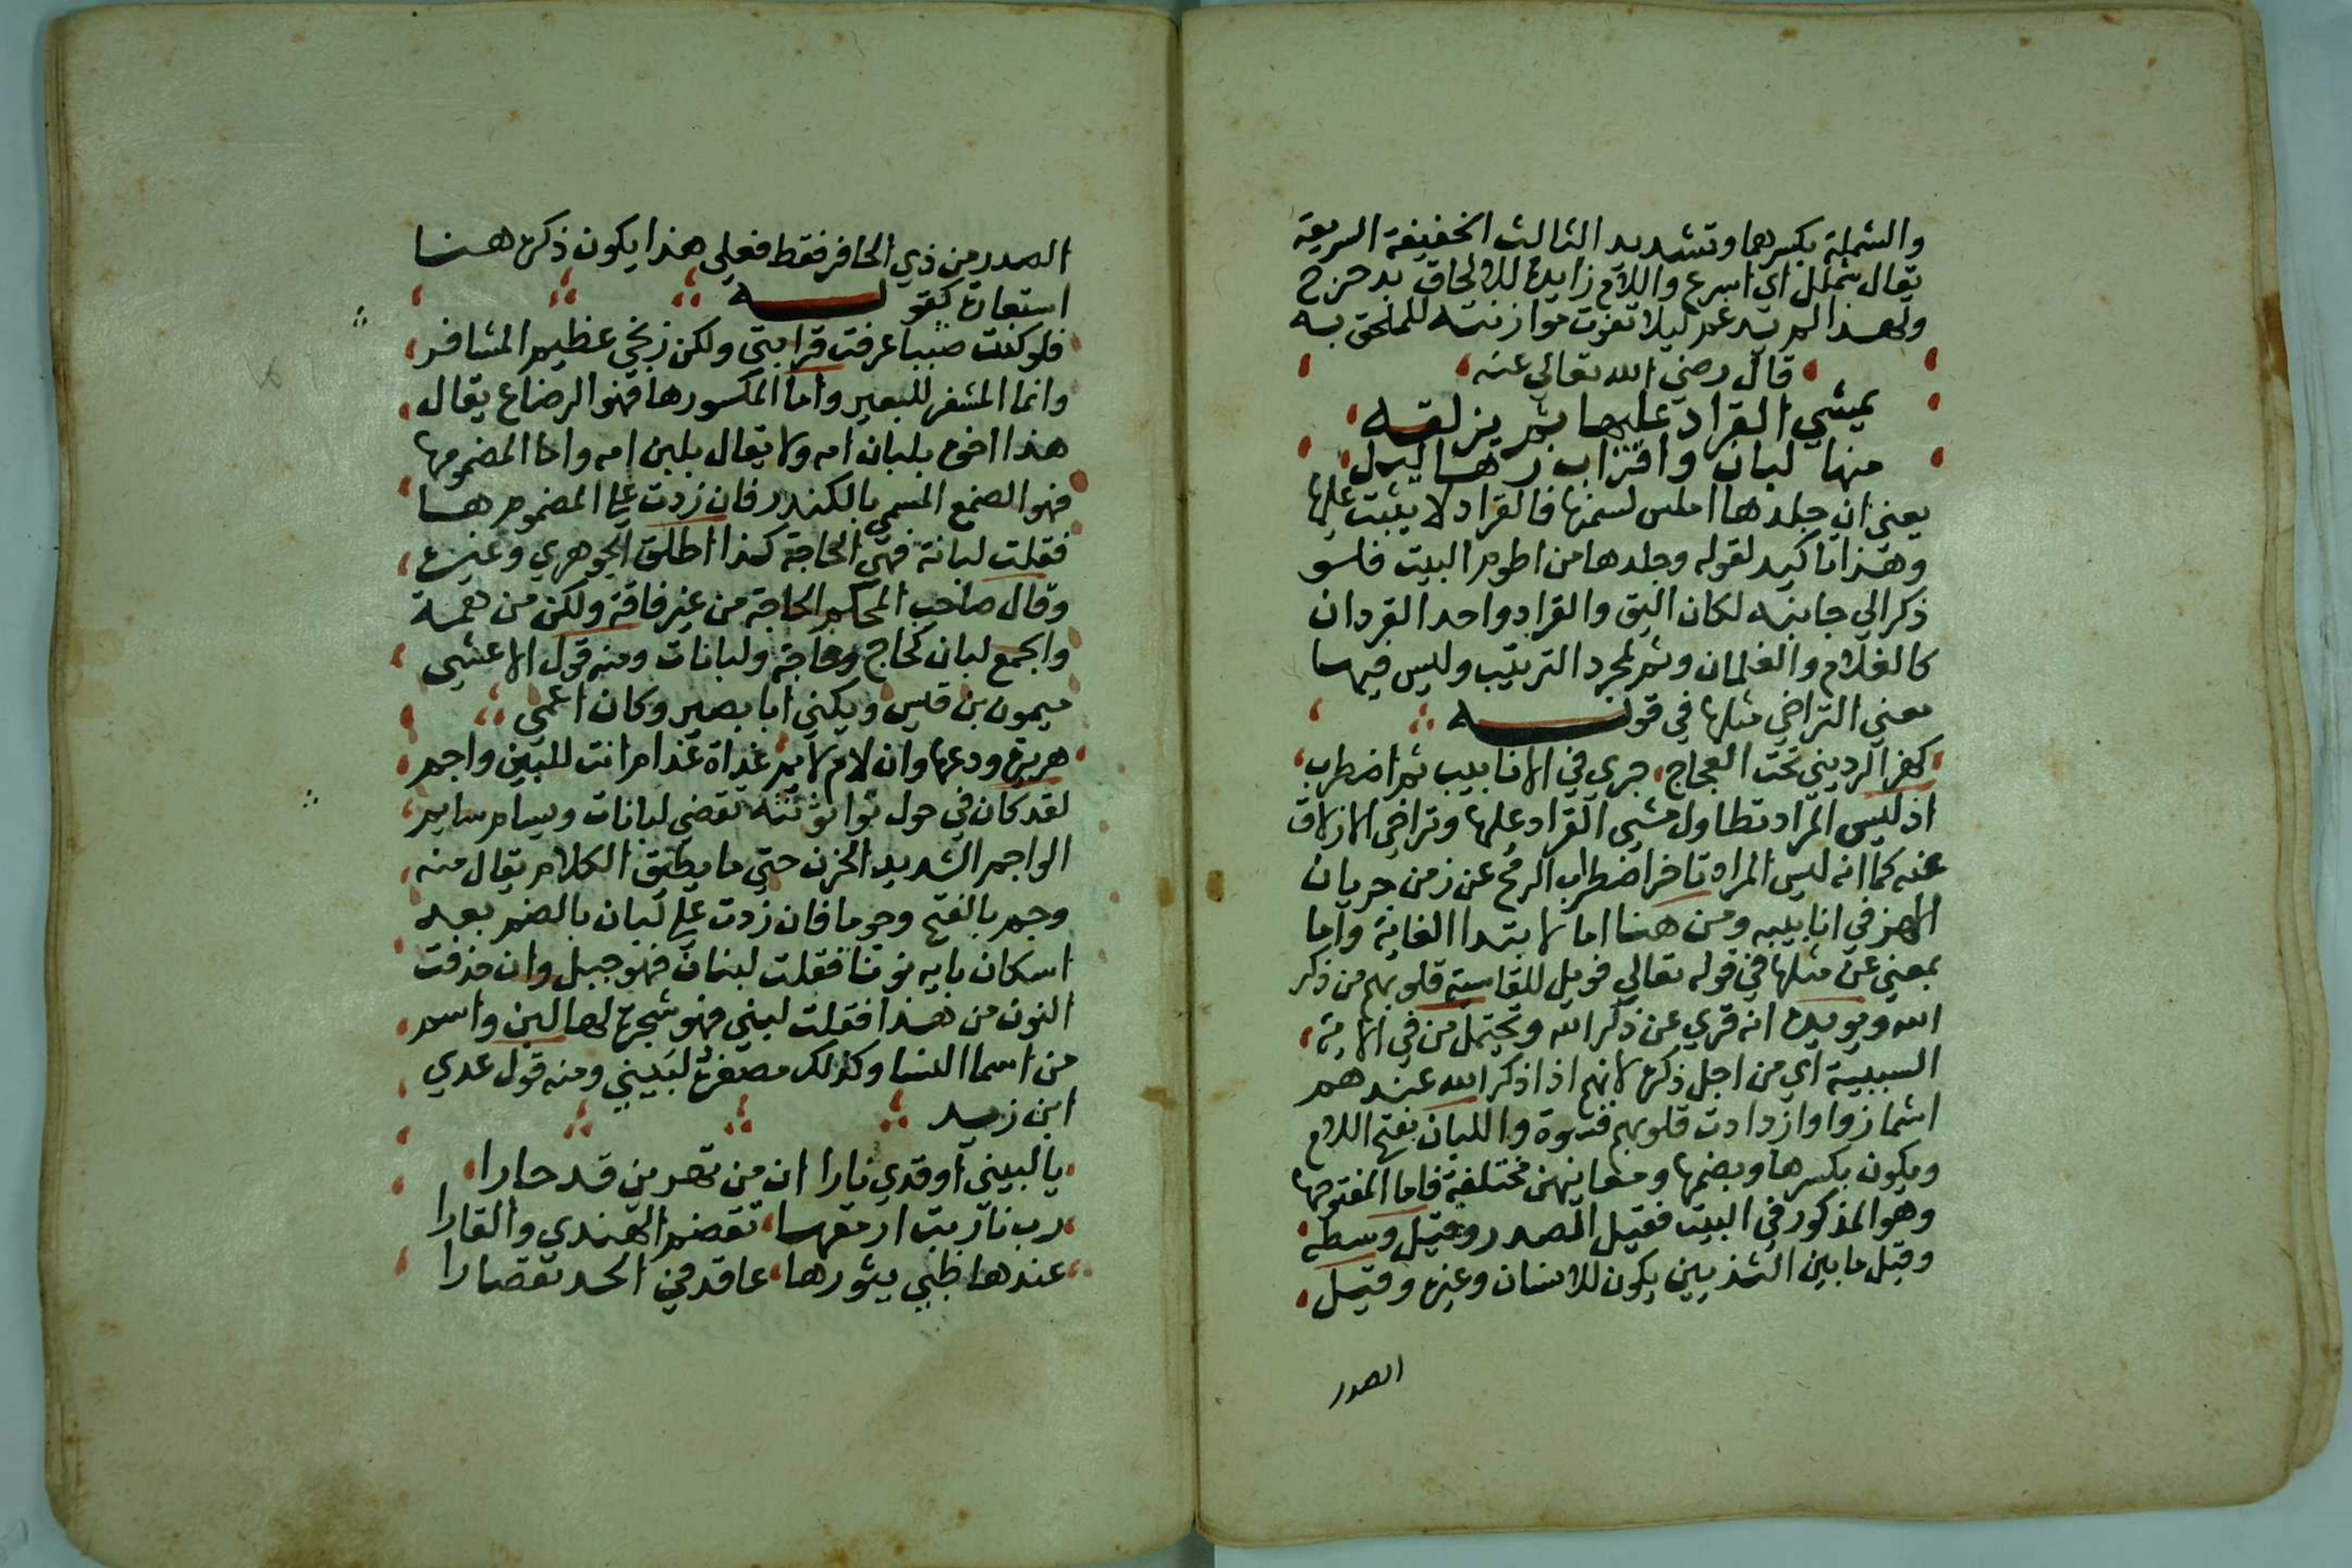 والشملة بكسرهما وتشديد الثالث الخفيفة السريعة
يقال شملل اي اسرع واللام زايدة للالحاق بدحرج
ولهذا لم يدغم ليلا تفوت موازنته للملحق به
قال رضي الله تعالي عنه
يمشي القراد عليها ثم يزلقه
منها لبان واقراب زهاليل
يعني ان جلدها املس لسمنها فالقراد لا يثبت عليها
وهذا تاكيد لقوله وجلدها من اطوم البيت فلو
ذكر الي جانبه لكان اليق والقراد واحد القردان
كالغلام والغلمان وثم لمجرد الترتيب وليس فيها
معني التراخي مثلها في قوله
كهز الرديني تحت العجاج جري في الانابيب ثم اضطرب
اذ ليس المراد تطاول مشي القراد عليها وتراخي الازلاق
عنه كما انه ليس المراد تاخر اضطراب الرمح عن زمن جريان
الهز في انابيبه ومن هنا اما لابتدا الغاية واما
بمعني عن مثلها في قوله تعالي فويل للقاسية قلوبهم من ذكر
الله ويويده انه قري عن ذكر الله وتحتمل من في الاية
السببية اي من اجل ذكره لانهم اذا ذكر الله عندهم
اشمازوا وازدادت قلوبهم قسوة واللبان بفتح اللام
ويكون بكسرها وبضمها ومعانيهن مختلفة فاما المفتوحها
وهو المذكور في البيت فقيل الصدر وقيل وسطه
وقيل ما بين الثديين يكون للانسان وغيره وقيل
الصدر
الصدر من ذي الحافر فقط فعلي هذا يكون ذكره هنا
استعارة كقوله
فلو كنت ضبيا عرفت قرابتي ولكن زنجي عظيم المشافر
وانما المشفر للبعير واما المكسورها فهو الرضاع يقال
هذا اخوه بلبان امه ولا يقال بلبن امه واما المضمومها
فهو الصمغ المسمي بالكندر فان زدت علي المضموم هـا
فقلت لبانة فهي الحاجة كذا اطلق الجوهري وغيره
وقال صاحب المحكم الحاجة من غير فاقة ولكن من همة
والجمع لبان كحاج وحاجة ولبانات ومنه قول الاعشي
ميمون بن قيس ويكني ابا بصير وكان اعمي
هريرة ودعها وان لام لايم غداة غد ام انت للبين واجم
لقد كان في حول ثواء ثويته تقضي لبانات ويسام سايم
الواجم الشديد الحزن حتي ما يطيق الكلام يقال منه
وجم بالفتح وجوما فان زدت علي لبان بالضم بعد
اسكان بايه نونا فقلت لبنان فهو جبل وان حذفت
النون من هذا فقلت لبني فهو شجرة لها لبن واسم
من اسما النسا وكذلك مصغره لبيني ومنه قول عدي
ابن زيد
يا لبيني اوقدي نارا ان من تهوين قد حارا
رب نار بت ارمقها تقضم الهندي والغارا
عندها ظبي يثورها عاقد في الجيد تقصارا